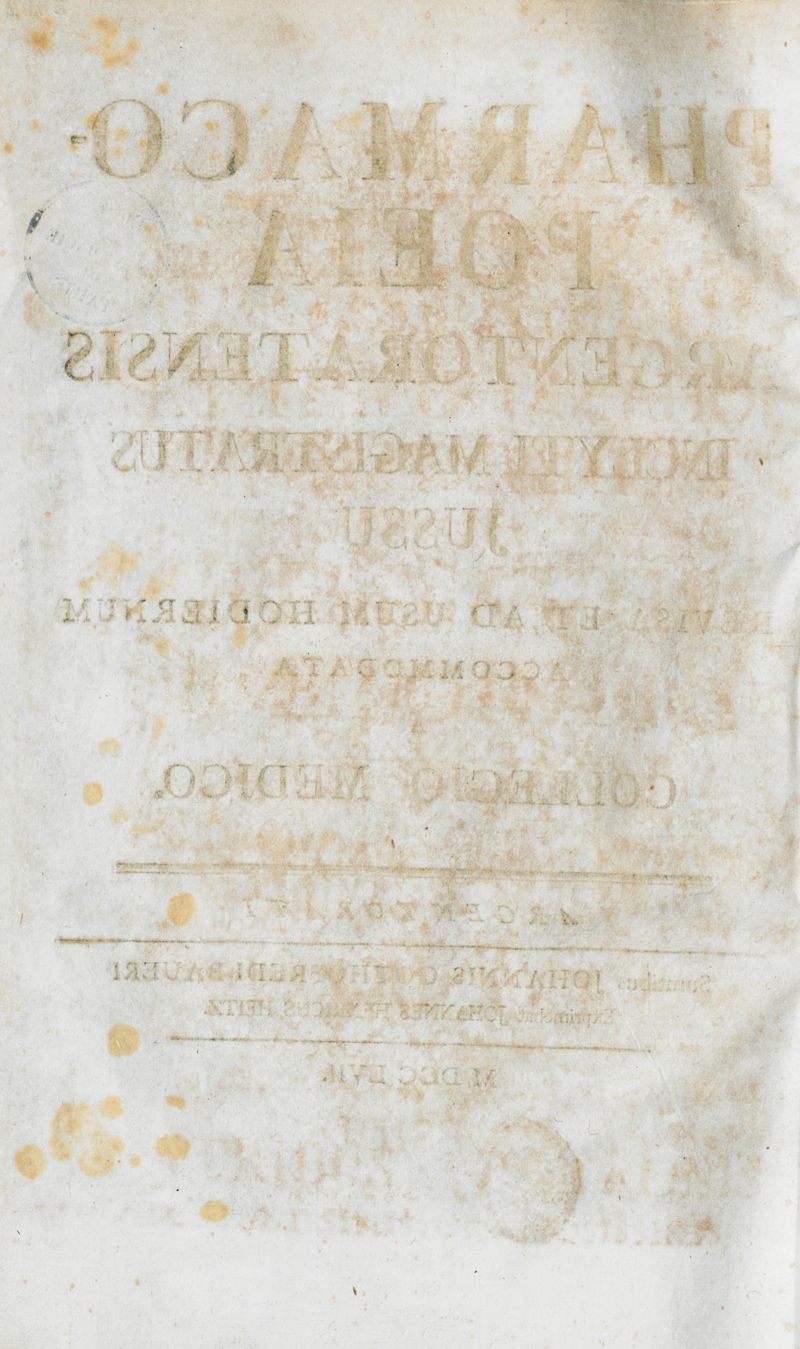 PHARMACO-
POEIA
ARGENTORATENSIS
INCLYTI MAGISTRATUS
JUSSU
REVISA ET AD USUM HODIERNUM
ACCOMMODATA
A
COLLEGIO MEDICO.
ARGENTORATI
Sumtibus JOHANNIS GOTHOFREDI BAUERI
Exprimebat JOHANNES HENRICUS HEITZ.
MDCCLVII.